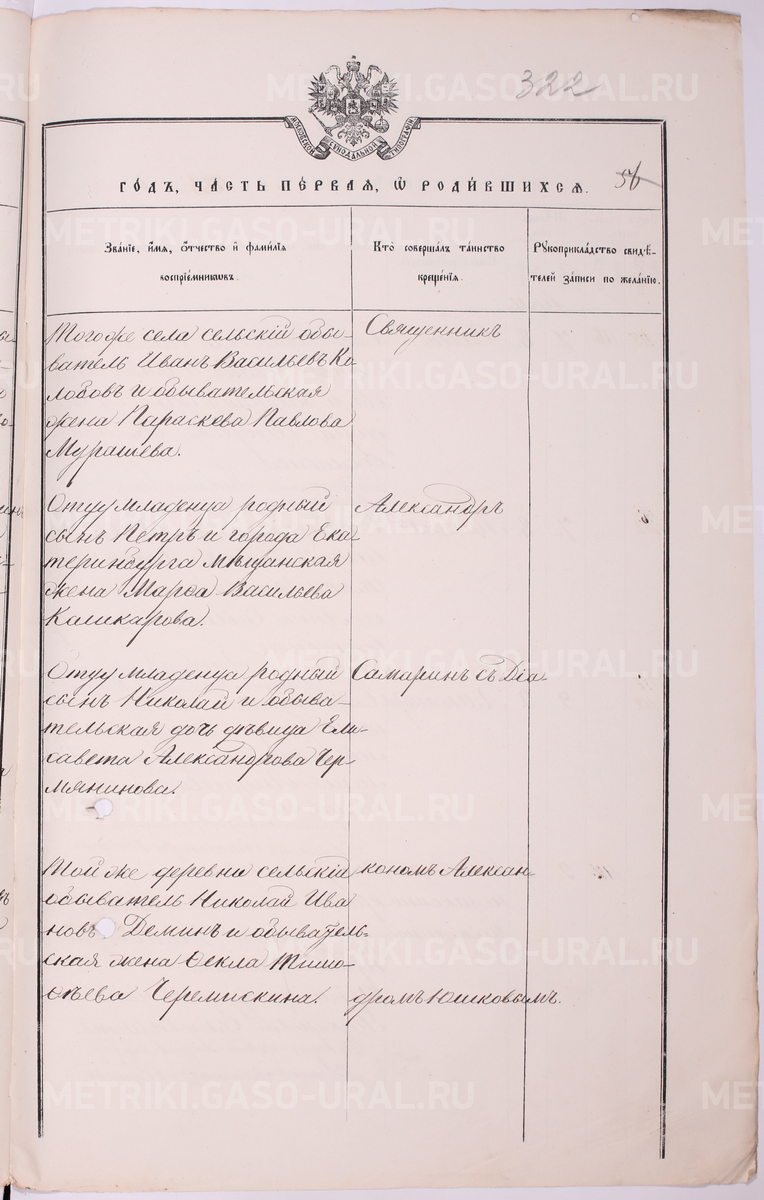 322
МОСКОВСКОЙ СѴНОДАЛЬНОЙ ТИПОГРАФІИ
ГО́ДЪ, ЧА́СТЬ ПЕ́РВАЯ, Ѡ҆ РОДИ́ВШИХСЯ.
56
Зва́ніе, и҆́мя, о҆́тчество и҆ фами́лія
воспріе́мниковъ.
Кто̀ соверша́лъ та́инство
креще́нія.
Рꙋкоприкла́дство свидѣ́-
телей за́писи по жела́нію.
Тогоже села сельскій обы-
ватель Иванъ Васильевъ Ко-
лобовъ и обывательская
жена Параскева Павлова
Мурашева.
Священникъ
Отцу младенца родный
сынъ Петръ и города Ека-
теринбурга мѣщанская
жена Марѳа Васильева
Кашкарова.
Александръ
Отцу младенца родный
сынъ Николай и обыва-
тельская дочь дѣвица Ели-
савета Александрова Чер-
мянинова.
Самаринъ съ Діа-
Той же деревни сельскій
обыватель Николай Ива
новъ Деминъ и обыватель-
ская жена Ѳекла Тимо-
ѳѣева Черемискина.
кономъ Алексан-
дромъ Юшковымъ.
METRIKI.GASO-URAL.RU